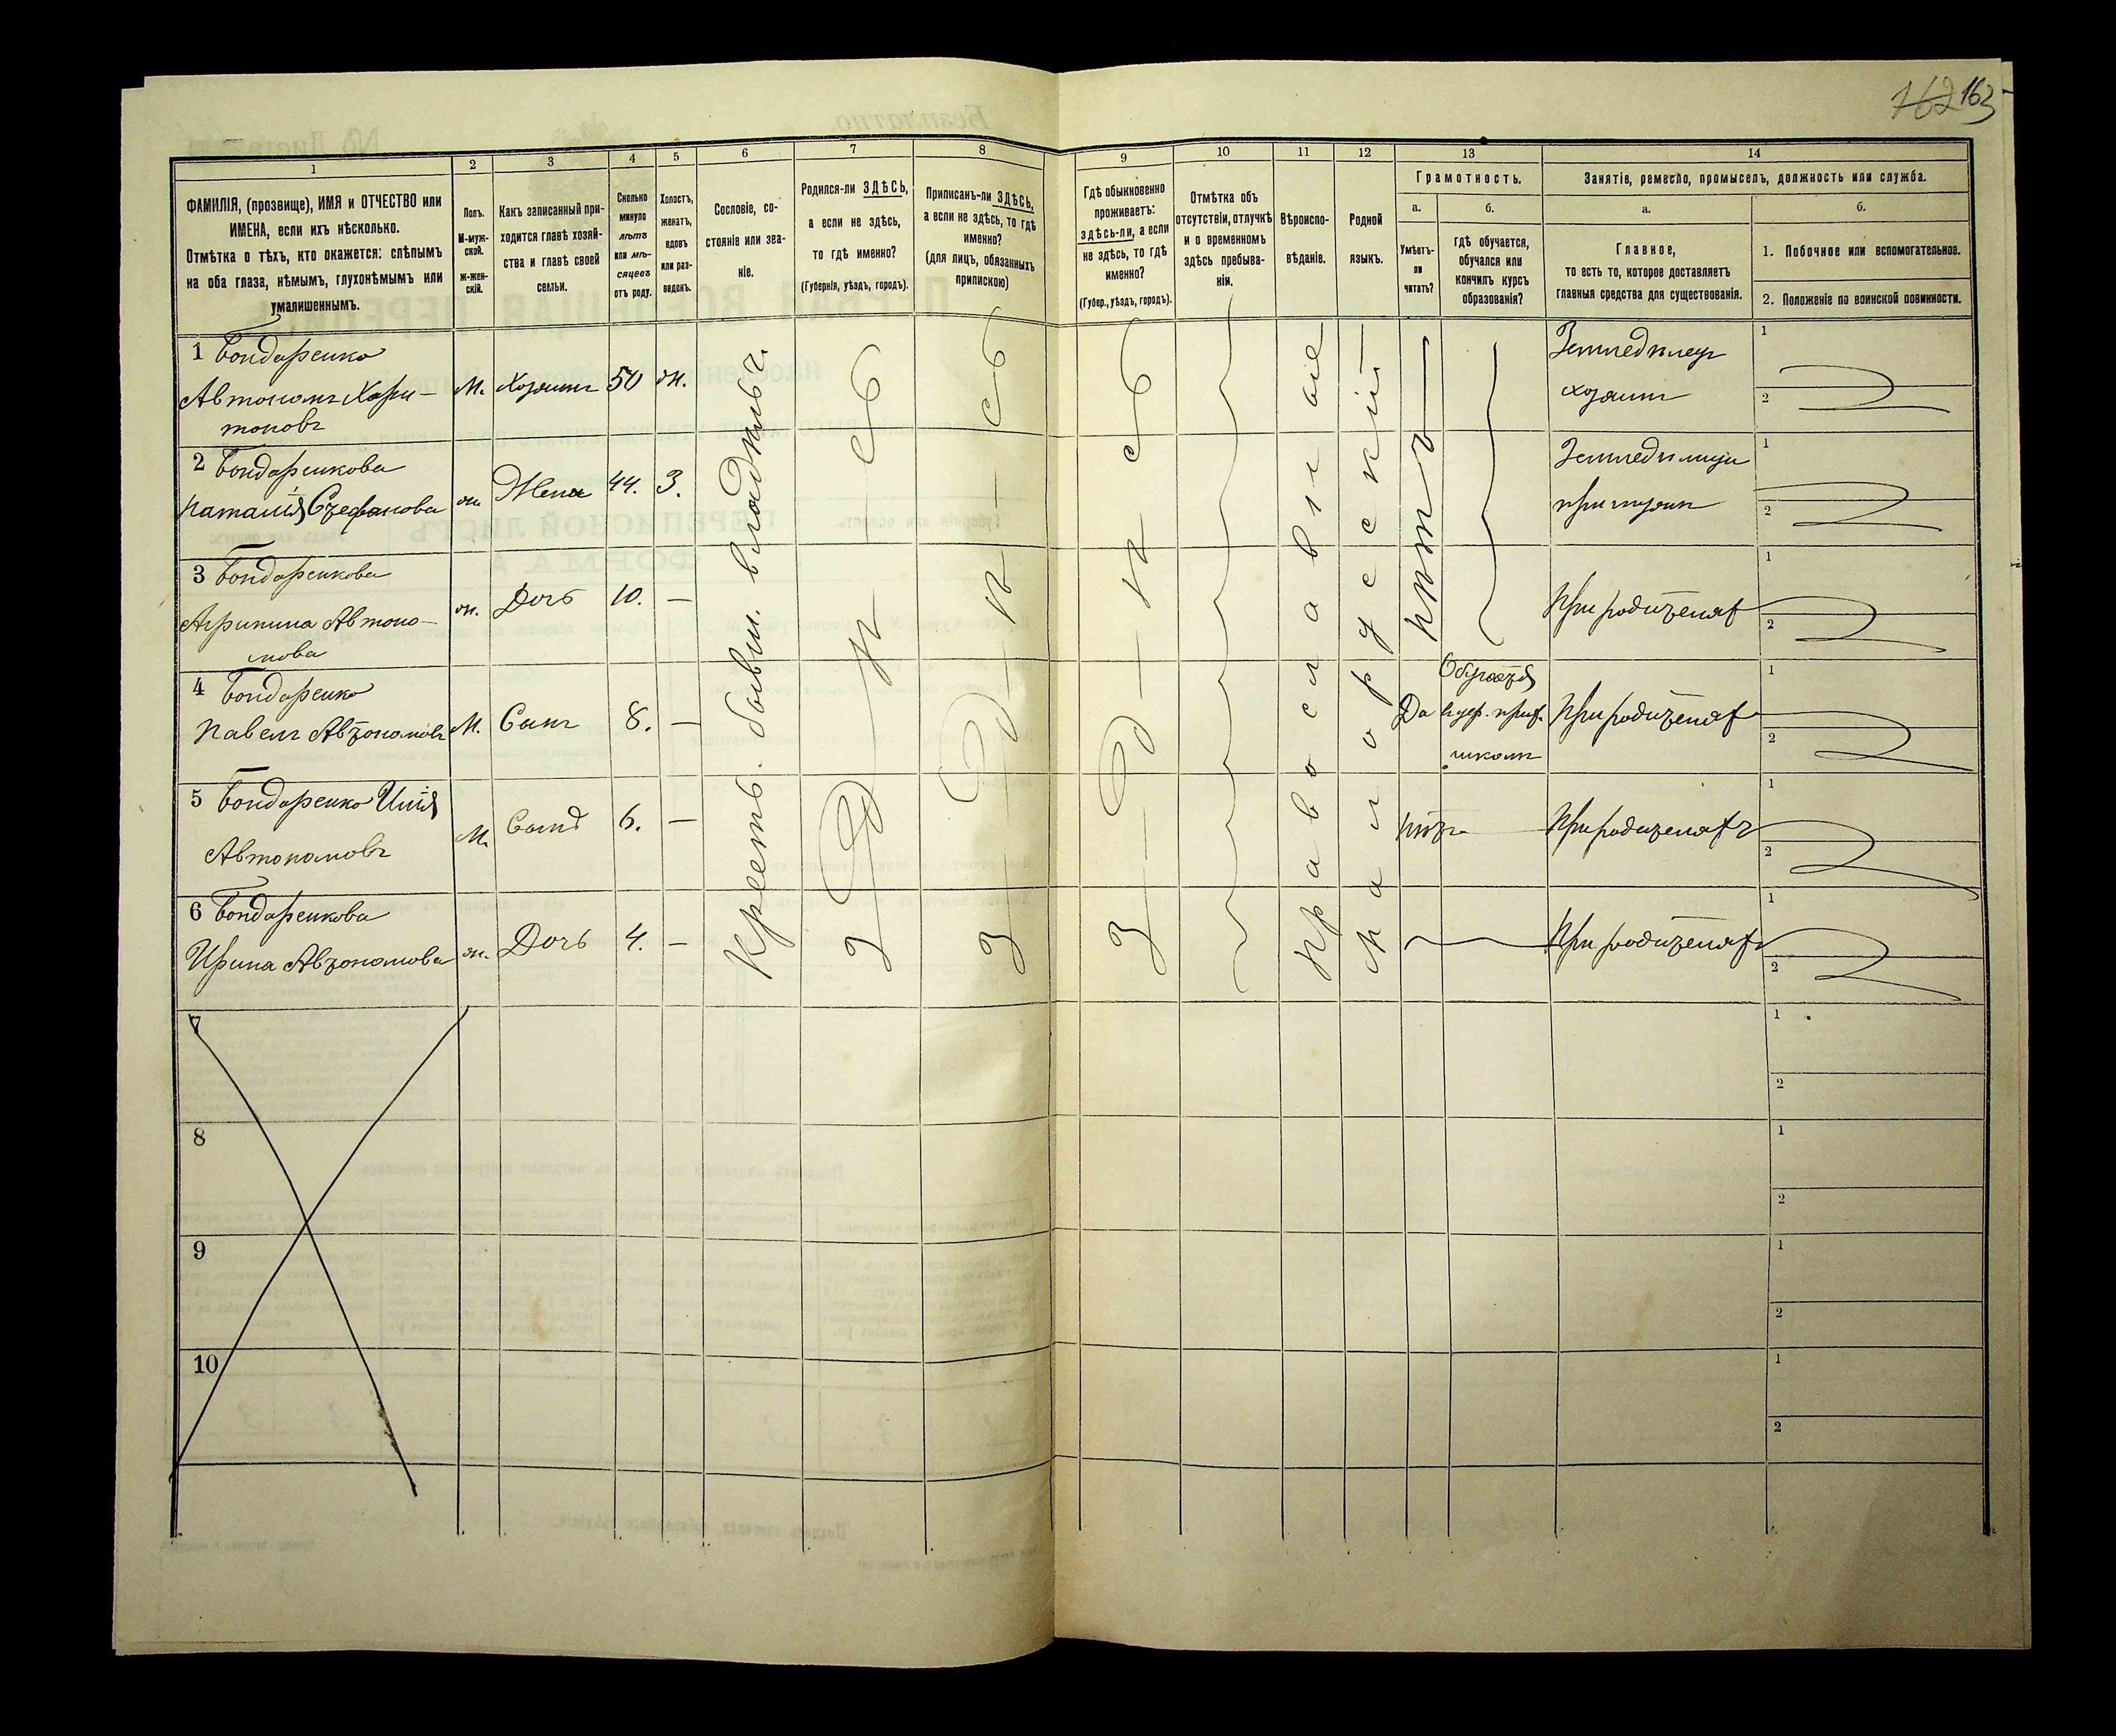 162 163
1
2
3
4
5
6
7
8
9
10
11
12
13
14
ФАМИЛІЯ, (прозвище), ИМЯ и ОТЧЕСТВО или
ИМЕНА, если ихъ нѣсколько.
Отмѣтка о тѣхъ, кто окажется: слѣпымъ
на оба глаза, нѣмымъ, глухонѣмымъ или
умалишеннымъ.
Полъ.
М-муж-
ской.
ж-жен-
скій.
Какъ записанный при-
ходится главѣ хозяй-
ства и главѣ своей
семьи.
Сколько
минуло
лѣтъ
или мѣ-
сяцевъ
отъ роду.
Холостъ,
женатъ,
вдовъ
или раз-
веденъ.
Сословіе, со-
стояніе или зва-
ніе.
Родился-ли ЗДѢСЬ,
а если не здѣсь,
то гдѣ именно?
(Губернія, уѣздъ, городъ).
Приписанъ-ли ЗДѢСЬ,
а если не здѣсь, то гдѣ
именно?
(для лицъ, обязанныхъ
припискою)
Гдѣ обыкновенно
проживаетъ:
здѣсь-ли, а если
не здѣсь, то гдѣ
именно?
(Губер., уѣздъ, городъ).
Отмѣтка объ
отсутствіи, отлучкѣ
и о временномъ
здѣсь пребыва-
ніи.
Вѣроиспо-
вѣданіе.
Родной
языкъ.
Грамотность.
а.
Умѣетъ-
ли
читать?
б.
гдѣ обучается,
обучался или
кончилъ курсъ
образованія?
Занятіе, ремесло, промыселъ, должность или служба.
а.
Главное,
то есть то, которое доставляетъ
главныя средства для существованія.
б.
1. Побочное или вспомогательное.
2. Положеніе по воинской повинности.
1 Бондаренко
Автономъ Хари-
тоновъ
М. Хозяинъ 50 ж.
Земледѣлецъ
хозяинъ
1
2
2 Бондаренкова
Наталія Стефанова
ж. Жена 44. З.
Земледѣлица
при мужѣ
1
2
3 Бондаренкова
Агрипина Автоно-
мова
ж. Дочь 10. —
При родителяхъ
1
2
4 Бондаренко
Павелъ Автономовъ
М. Сынъ 8. —
Да
Обучается
школѣ
При родителяхъ
1
2
5 Бондаренко Илія
Автономовъ
М. Сынъ 6. —
нѣтъ
При родителяхъ
1
2
6 Бондаренкова
Ирина Автономова
ж. Дочь 4. —
При родителяхъ
1
2
Крестъ. бывш. владѣльч.
З Д Ѣ С Ь
З Д Ѣ С Ь
З Д Ѣ С Ь
Православное
Малорусскій
нѣтъ
7
1
2
8
1
2
9
1
2
10
1
2